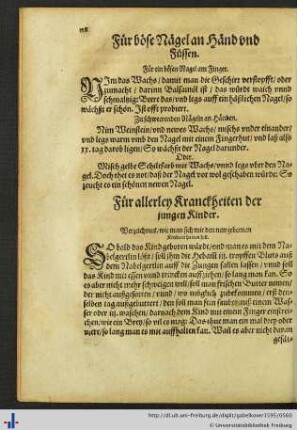 118
Für böse Nägel an Händ vnd
Füssen.
Für ein bösen Nagel am Finger.
NIm das Wachs / damit man die Geschirr verstopfft / oder
zumacht / darinn Balsamöl ist / das würdt waich vnnd
schmaltzig: Beer das / vnd legs auff ein häßlichen Nagel / so
wächßt er schön. Ist offt probiert.
Zu schwerenden Nägeln an Händen.
Nim Weinstein / vnd newes Wachs / mischs vnder einander /
vnd legs warm vmb den Nagel mit einem Fingerhut / vnd laß also
tag darob ligen / So wächst der Nagel darunder.
Oder.
Misch gelbe Schelffarb mit Wachs / vnnd legs vber den Na-
gel. Doch thet es not / daß der Nagel vor wol geschaben würde: So
zeucht es ein schönen newen Nagel.
Für allerley Kranckheiten der
jungen Kinder.
Verzeichnus / wie man sich mit den neugebornen
Kindern halten soll.
SO bald das Kind geboren würdt / vnd man es mit dem Na-
belgertlin löset / soll ihm die Hebam iij. tropffen Bluts auß
dem Nabelgertlin auff die Zungen fallen lassen / vnnd soll
das Kind mit essen vnd trincken auffziehen / so lang man kan. So
es aber nicht mehr schweigen will / soll man frischen Butter nemen /
der nicht außgesotten / vnnd / wo müglich zubekommen / erst den-
selben tag außgerüttert / der soll man fein sauber auß einem Was-
ser oder iij. waschen / darnach dem Kind mit einem Finger einstrei-
chen / wie ein Brey / so vil es mag: Das thut man ein mal drey oder
mehr / so lang man es mit auffhalten kan. Weil es aber nicht daran
gesät-
http://dl.ub.uni-freiburg.de/diglit/gabelkover1595/0560
© Universitätsbibliothek Freiburg